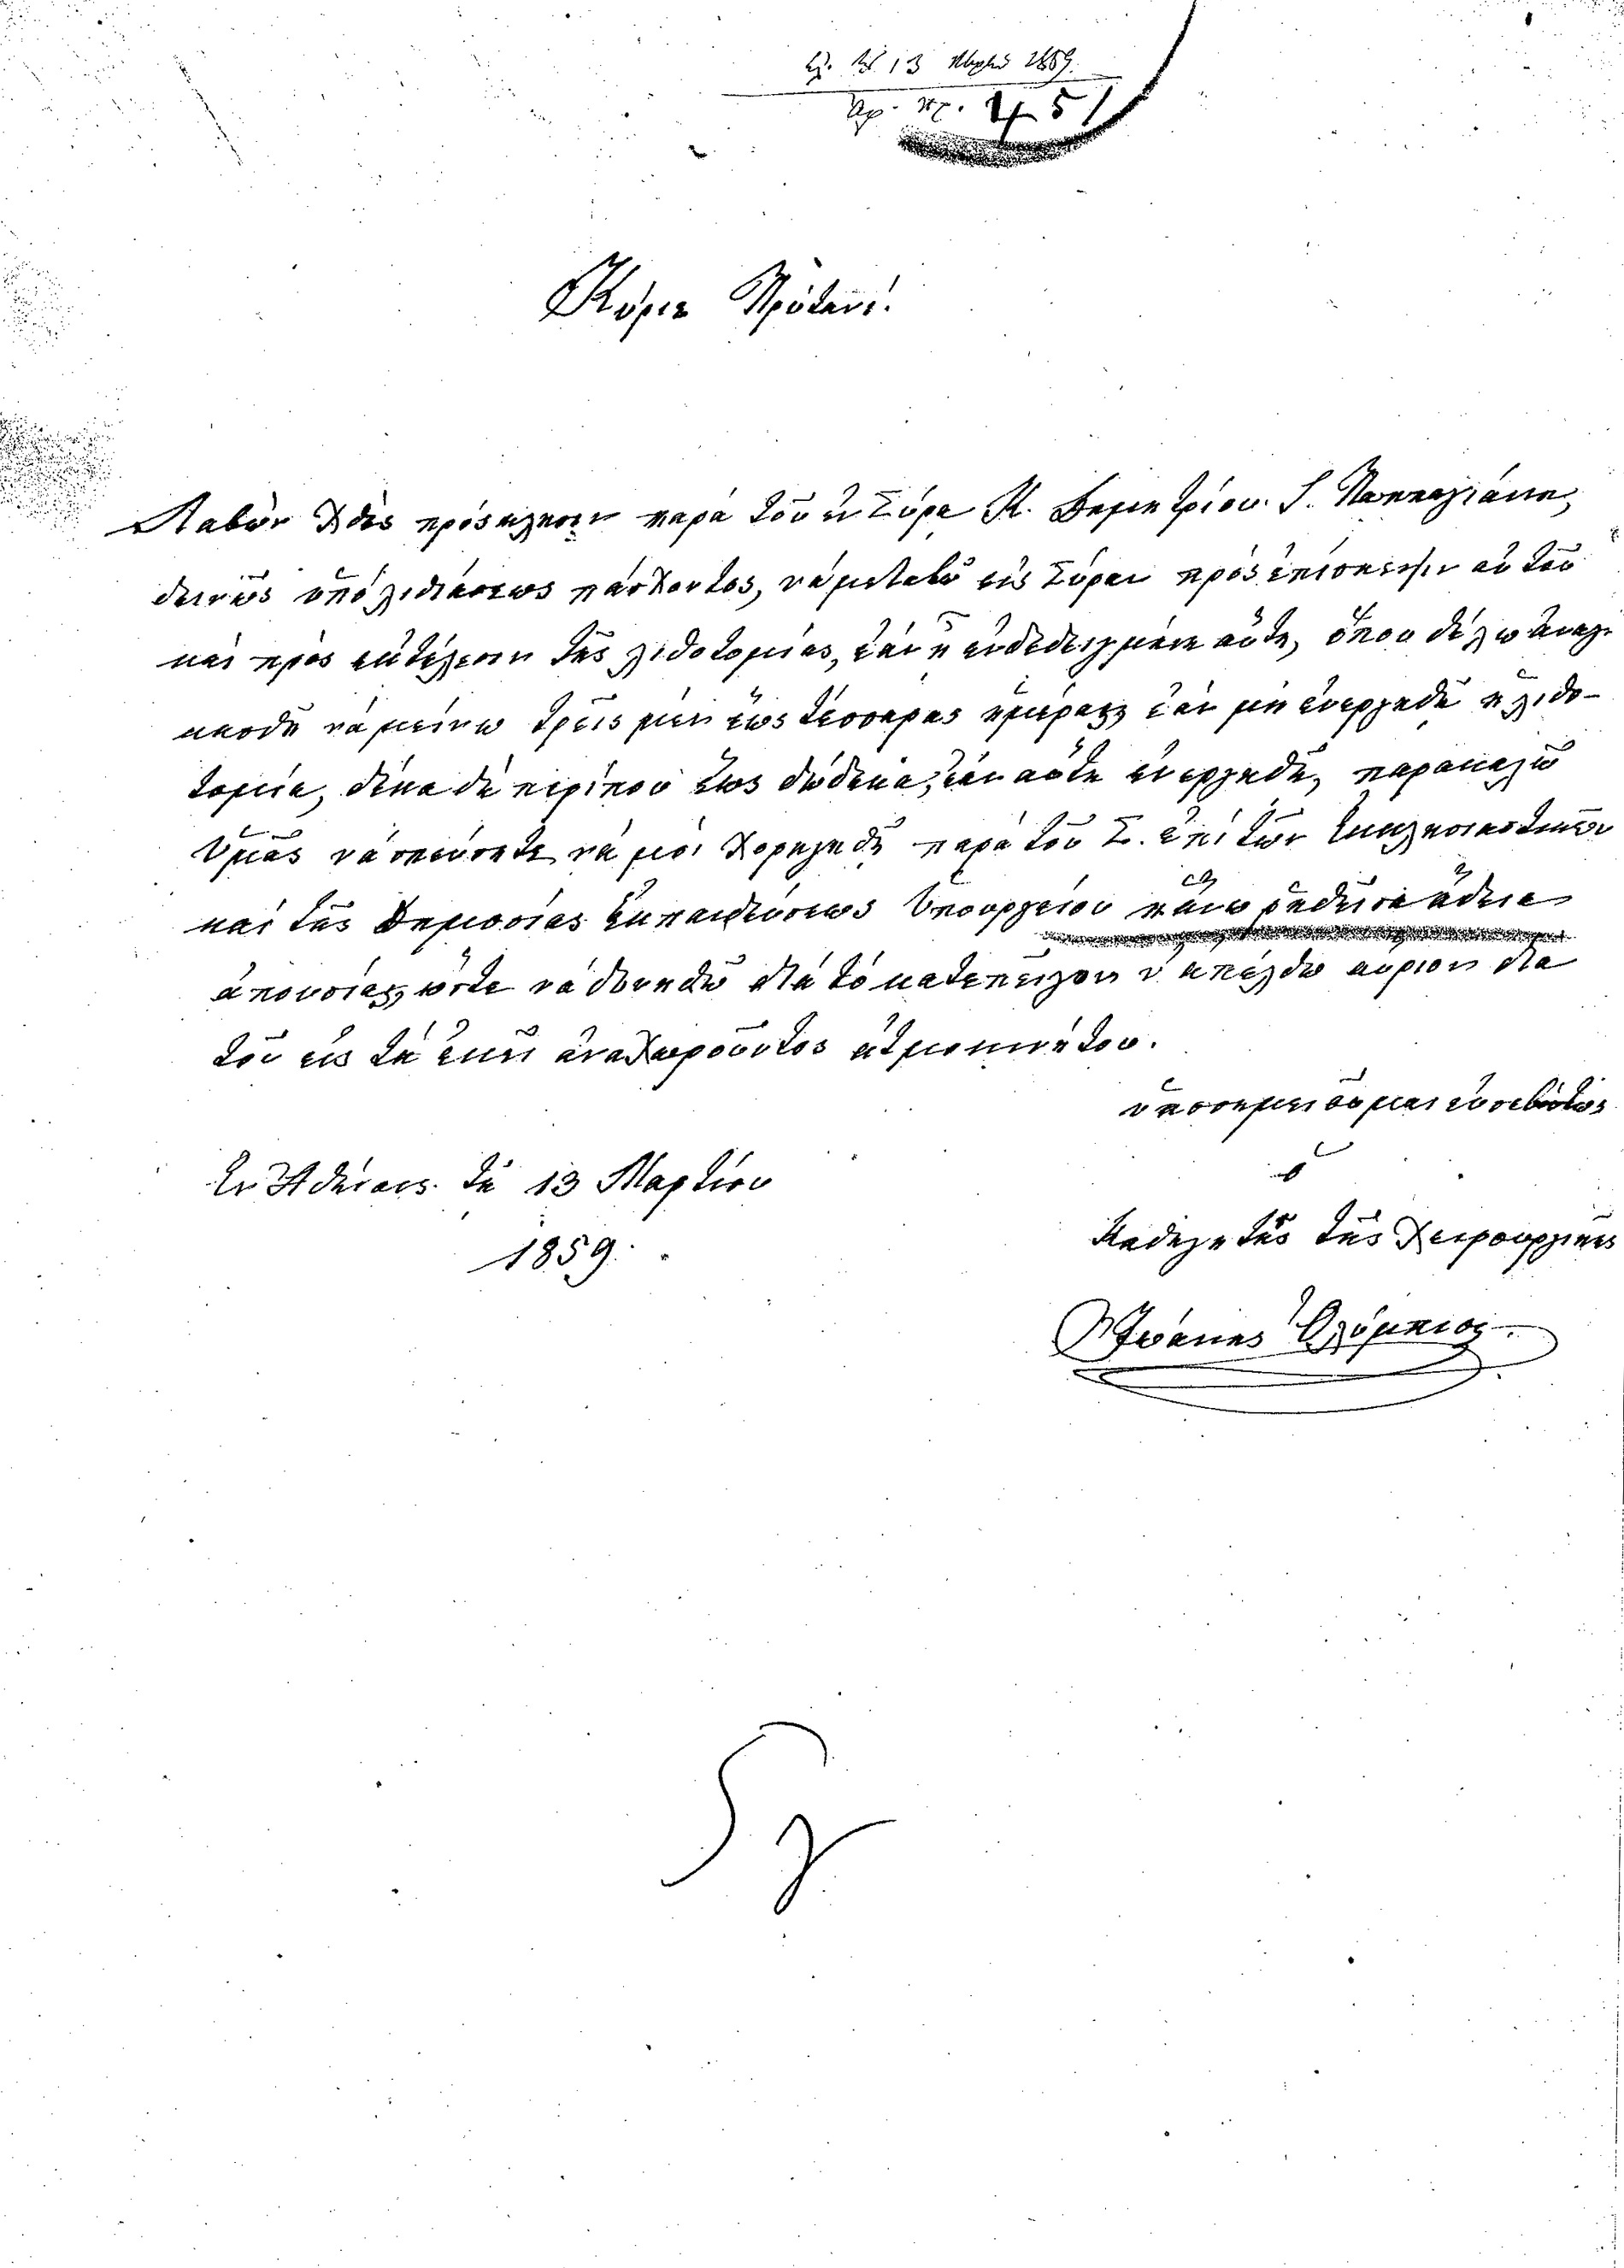 13 Μαρτίου 1859.
Αρ. Πρ. 451
Κύριε Πρύτανι!
Λαβὼν χθὲς πρόσκλησιν παρὰ τοῦ ἐν Σύρᾳ Κ. Δημητρίου Γ. Παππαγιάννη,
δεινῶς ὑπὸ λιθιάσεως πάσχοντος, νὰ μεταβῶ εἰς Σύραν πρὸς ἐπίσκεψιν αὐτοῦ
καὶ πρὸς ἐκτέλεσιν τῆς λιθοτομίας, ἐὰν ᾖ ἐνδεδειγμένη αὕτη, ὅπου θέλω ἀναγ-
κασθῆ νὰ μείνω τρεῖς μὲν ἕως τέσσαρας ἡμέρας, ἐὰν μὴ ἐνεργηθῇ ἡ λιθο-
τομία, δέκα δὲ περίπου ἕως δώδεκα, ἐὰν αὕτη ἐνεργηθῇ, παρακαλῶ
Ὑμᾶς νὰ σπεύσητε νὰ μοὶ χορηγηθῇ παρὰ τοῦ Σ. ἐπὶ τῶν Ἐκκλησιαστικῶν
καὶ τῆς Δημοσίας Ἐκπαιδεύσεως Ὑπουργείου ἡ ἄνω ῥηθεῖσα ἄδεια
ἀπουσίας, ὥστε νὰ δυνηθῶ διὰ τὸ κατεπεῖγον ν' ἀπέλθω αὔριον διὰ
τοῦ εἰς τὰ ἐκεῖ ἀναχωροῦντος ἀτμοκινήτου.
ὑποσημειοῦμαι εὐσεβάστως
ὁ
Ἐν Ἀθήναις τῇ 13 Μαρτίου
1859.
Καθηγητὴς τῆς Χειρουργικῆς
Ἰωάννης Ὀλύμπιος